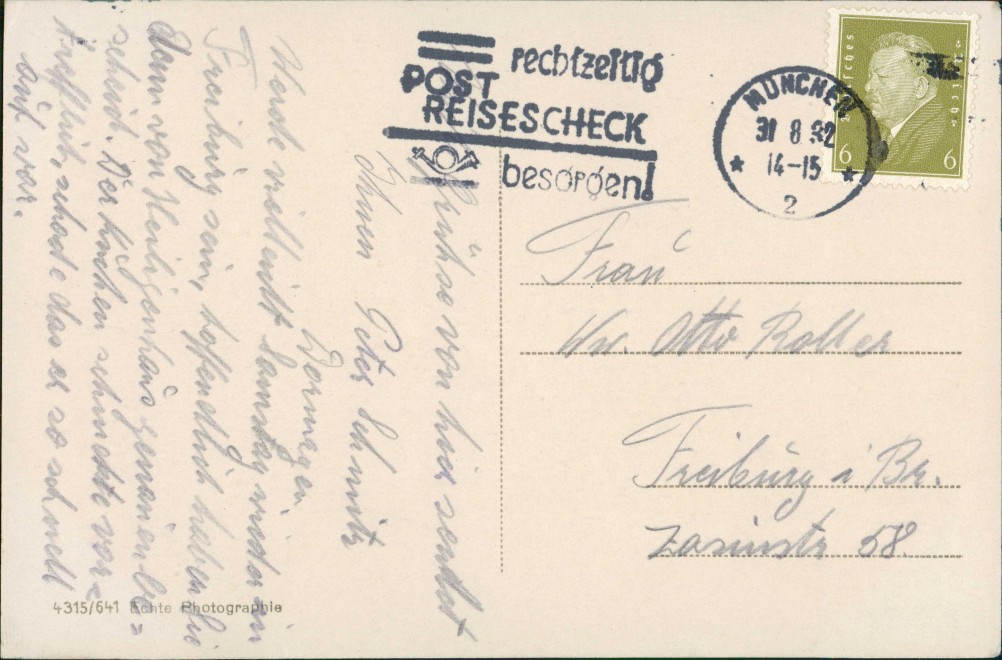 POST
REISESCHECK
rechtzeitig
besorgen!
MÜNCHEN
31 8 32
14-15
2
6 6
Grüße von hier sendet
Ihnen Peter Schmitz
Dormagen
Werde vielleicht Samstag wieder in
Freiburg sein, hoffentlich haben Sie
denn von Heiligenhaus genauen be=
scheid. Der Kuchen schmeckte vor=
trefflich, schade das er so schnell
auf war.
Frau
Ww. Otto Roller
Freiburg i Br.
Zasiusstr 58.
4315/641 Echte Photographie